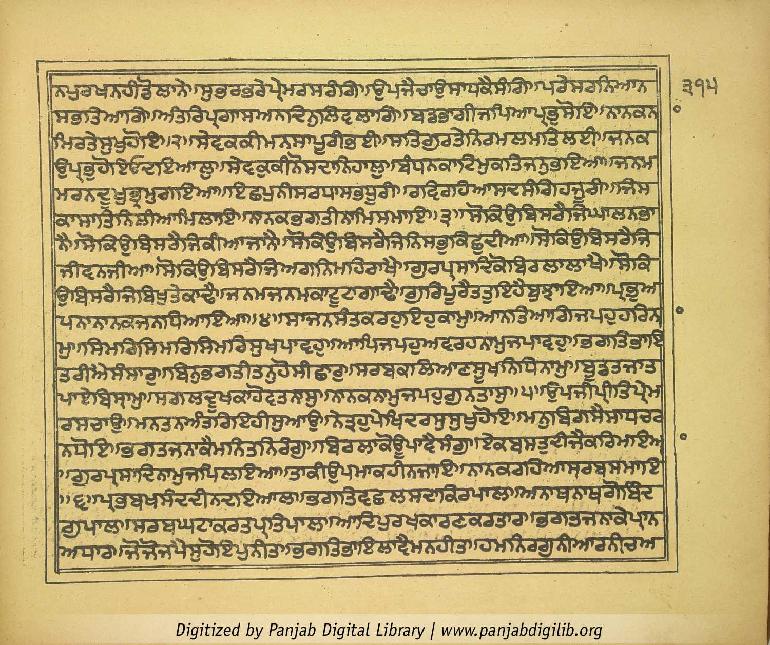 ੩੧੫
ਨਪੁਰਖਨਹੀਡੋਲਾਨੇ॥ਸੁਭਰਭਰੇਪ੍ਰੇਮਰਸਰੰਗਿ॥ਉਪਜੈਚਾਉਸਾਧਕੈਸੰਗਿ॥ਪਰੇਸਰਨਿਆਨ
ਸਭਤਿਆਗਿ॥ਅੰਤਰਿਪ੍ਰਗਾਸਅਨਦਿਨੁਲਿਵਲਾਗਿ॥ਬਡਭਾਗੀਜਪਿਆਪ੍ਰਭੁਸੋਇ॥ਨਾਨਕਨਾ
ਮਿਰਤੇਸੁਖੁਹੋਇ॥੨॥ਸੇਵਕਕੀਮਨਸਾਪੂਰੀਭਈ॥ਸਤਿਗੁਰਤੇਨਿਰਮਲਮਤਿਲਈ॥ਜਨਕ
ਉਪ੍ਰਭੁਹੋਇਓਦਇਆਲੁ॥ਸੇਵਕੁਕੀਨੋਸਦਾਨਿਹਾਲੁ॥ਬੰਧਨਕਾਟਿਮੁਕਤਿਜਨੁਭਇਆ॥ਜਨਮ
ਮਰਨਦੂਖੁਭ੍ਰਮੁਗਇਆ॥ਇਛਪੁਨੀਸਰਧਾਸਭਪੂਰੀ॥ਰਵਿਰਹਿਆਸਦਸੰਗਿਹਜੂਰੀ॥ਜਿਸ
ਕਾਸਾਤਿਨਿਲੀਆਮਿਲਾਇ॥ਨਾਨਕਭਗਤੀਨਾਮਿਸਮਾਇ॥੩॥ਸੋਕਿਉਬਿਸਰੈਜਿਘਾਲਨਭਾ
ਨੈ॥ਸੋਕਿਉਬਿਸਰੈਜਿਕੀਆਜਾਨੈ॥ਸੋਕਿਉਬਿਸਰੈਜਿਨਿਸਭੁਕਿਛੁਦੀਆ॥ਸੋਕਿਉਬਿਸਰੈਜਿ
ਜੀਵਨਜੀਆ॥ਸੋਕਿਉਬਿਸਰੈਜਿਅਗਨਿਮਹਿਰਾਖੈ॥ਗੁਰਪ੍ਰਸਾਦਿਕੋਬਿਰਲਾਲਾਖੈ॥ਸੋਕਿ
ਉਬਿਸਰੈਜਿਬਿਖੁਤੇਕਾਢੈ॥ਜਨਮਜਨਮਕਾਟੂਟਾਗਾਢੈ॥ਗੁਰਿਪੂਰੈਤਤੁਇਹੈਬੁਝਾਇਆ॥ਪ੍ਰਭੁਅ
ਪਨਾਨਾਨਕਜਨਧਿਆਇਆ॥੪॥ਸਾਜਨਸੰਤਕਰਹੁਇਹੁਕਾਮੁ॥ਆਨਤਿਆਗਿਜਪਹੁਹਰਿਨਾ
ਮੁ॥ਸਿਮਰਿਸਿਮਰਿਸਿਮਰਿਸੁਖਪਾਵਹੁ॥ਆਪਿਜਪਹੁਅਵਰਹਨਾਮੁਜਪਾਵਹੁ॥ਭਗਤਿਭਾਇ
ਤਰੀਐਸੰਸਾਰੁ॥ਬਿਨੁਭਗਤੀਤਨੁਹੋਸੀਛਾਰੁ॥ਸਰਬਕਲਿਆਣਸੂਖਨਿਧਿਨਾਮੁ॥ਬੂਡਤਜਾਤ
ਪਾਏਬਿਸ੍ਰਾਮੁ॥ਸਗਲਦੂਖਕਾਹੋਵਤਨਾਸੁ॥ਨਾਨਕਨਾਮੁਜਪਹੁਗੁਨਤਾਸੁ॥੫॥ਉਪਜੀਪ੍ਰੀਤਿਪ੍ਰੇਮ
ਰਸਚਾਉ॥ਮਨਤਨਅੰਤਰਿਇਹੀਸੁਆਉ॥ਨੇਤ੍ਰਹੁਪੇਖਿਦਰਸੁਸੁਖੁਹੋਇ॥ਮਨੁਬਿਗਸੈਸਾਧਚਰ
ਨਧੋਇ॥ਭਗਤਜਨਾਕੈਮਨਿਤਨਿਰੰਗੁ॥ਬਿਰਲਾਕੋਊਪਾਵੈਸੰਗੁ॥ਏਕਬਸਤੁਦੀਜੈਕਰਿਮਇਆ
॥ਗੁਰਪ੍ਰਸਾਦਿਨਾਮੁਜਪਿਲਇਆ॥ਤਾਕੀਉਪਮਾਕਹੀਨਜਾਇ॥ਨਾਨਕਰਹਿਆਸਰਬਸਮਾਇ
॥੬॥ਪ੍ਰਭਬਖਸੰਦਦੀਨਦਇਆਲ॥ਭਗਤਿਵਛਲਸਦਾਕਿਰਪਾਲ॥ਅਨਾਥਨਾਥਗੋਬਿੰਦ
ਗੁਪਾਲ॥ਸਰਬਘਟਾਕਰਤਪ੍ਰਤਿਪਾਲ॥ਆਦਿਪੁਰਖਕਾਰਣਕਰਤਾਰ॥ਭਗਤਜਨਾਕੇਪ੍ਰਾਨ
ਅਧਾਰ॥ਜੋਜੋਜਪੈਸੁਹੋਇਪੁਨੀਤ॥ਭਗਤਿਭਾਇਲਾਵੈਮਨਹੀਤ॥ਹਮਨਿਰਗੁਨੀਆਰਨੀਚਅ
Digitized by Panjab Digital Library | www.panjabdigilib.org